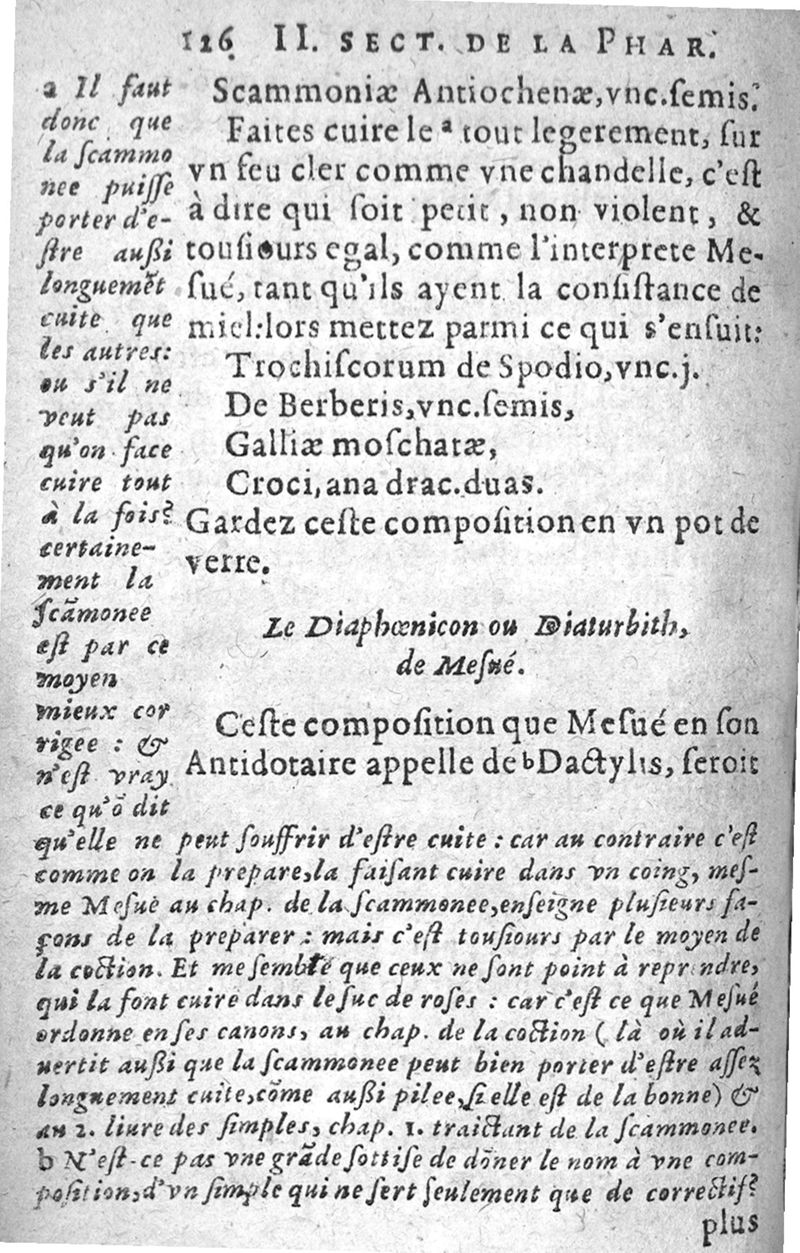 126. II. SECT. DE LA PHAR.
Scammoniæ Antiochenæ, vnc. ſemis.
Faites cuire le ᵃ tout legerement, ſur
vn feu cler comme vne chandelle, c'eſt
à dire qui ſoit petit, non violent, &
touſiours egal, comme l'interprete Me-
ſué, tant qu'ils ayent la conſiſtance de
miel: lors mettez parmi ce qui s'enſuit:
Trochiſcorum de Spodio, vnc. j.
De Berberis, vnc. ſemis,
Galliæ moſchatæ,
Croci, ana drac. duas.
Gardez ceſte compoſition en vn pot de
verre.
Le Diaphœnicon ou Diaturbith,
de Meſué.
Ceſte compoſition que Meſué en ſon
Antidotaire appelle de ᵇ Dactylis, ſeroit
a Il faut
donc que
la ſcammo
nee puiſſe
porter d'e-
ſtre auſſi
longuemẽt
cuite que
les autres:
ou s'il ne
veut pas
qu'on face
cuire tout
à la fois?
certaine-
ment la
ſcãmonee
eſt par ce
moyen
mieux cor
rigee : &
n'eſt vray
ce qu'õ dit
qu'elle ne peut ſouffrir d'eſtre cuite : car au contraire c'eſt
comme on la prepare, la faiſant cuire dans vn coing, meſ-
me Meſué au chap. de la ſcammonee, enſeigne pluſieurs fa-
çons de la preparer : mais c'eſt touſiours par le moyen de
la coction. Et me ſemble que ceux ne ſont point à reprendre,
qui la font cuire dans le ſuc de roſes : car c'eſt ce que Meſué
ordonne en ſes canons, au chap. de la coction ( là où il ad-
uertit auſſi que la ſcammonee peut bien porter d'eſtre aſſez
longuement cuite, cõme auſſi pilee, ſi elle eſt de la bonne) &
au 2. liure des ſimples, chap. 1. traictant de la ſcammonee.
b N'eſt-ce pas vne grãde ſottiſe de dõner le nom à vne com-
poſition, d'vn ſimple qui ne ſert ſeulement que de correctif?
plus